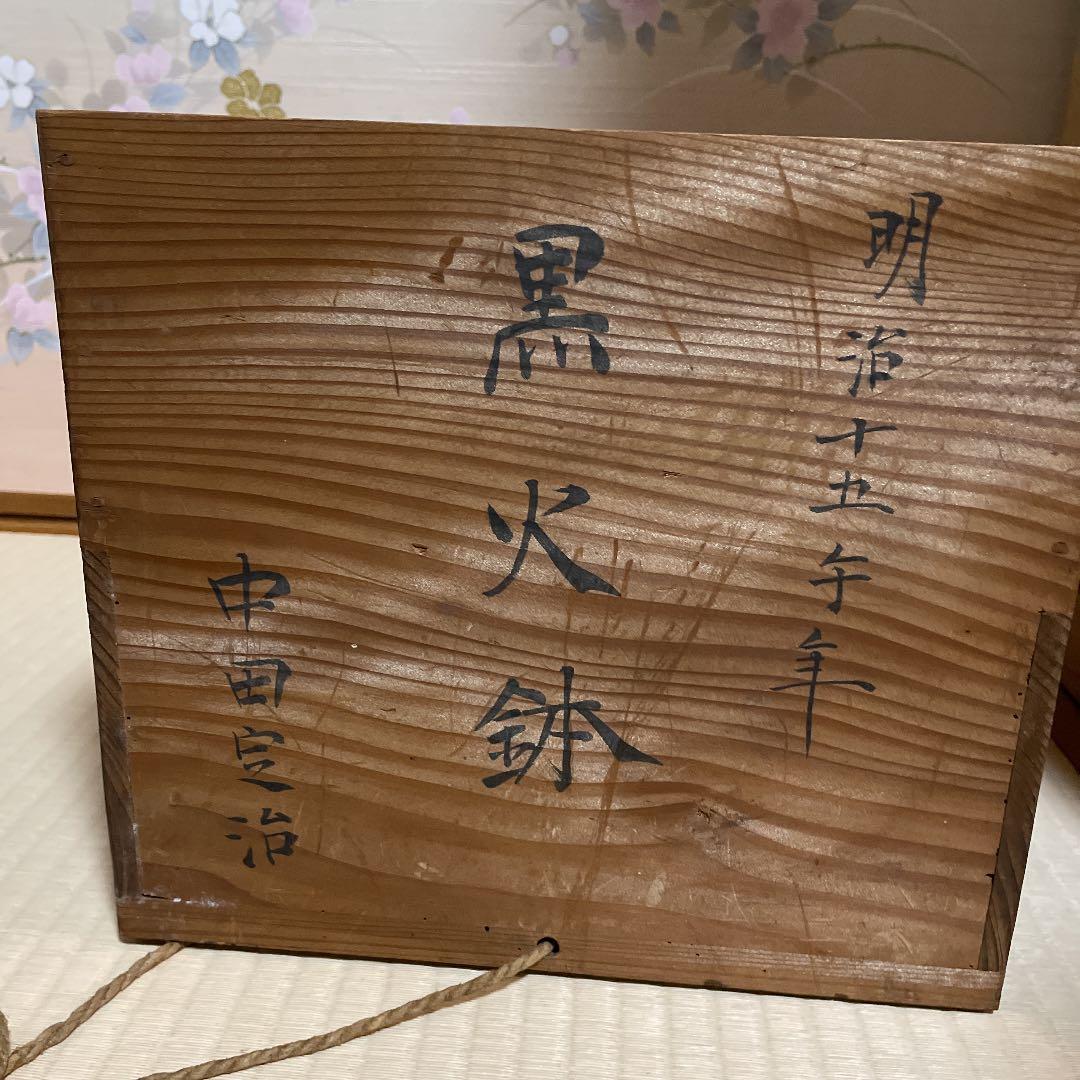 明治十五午年
黒火鉢
中田定治